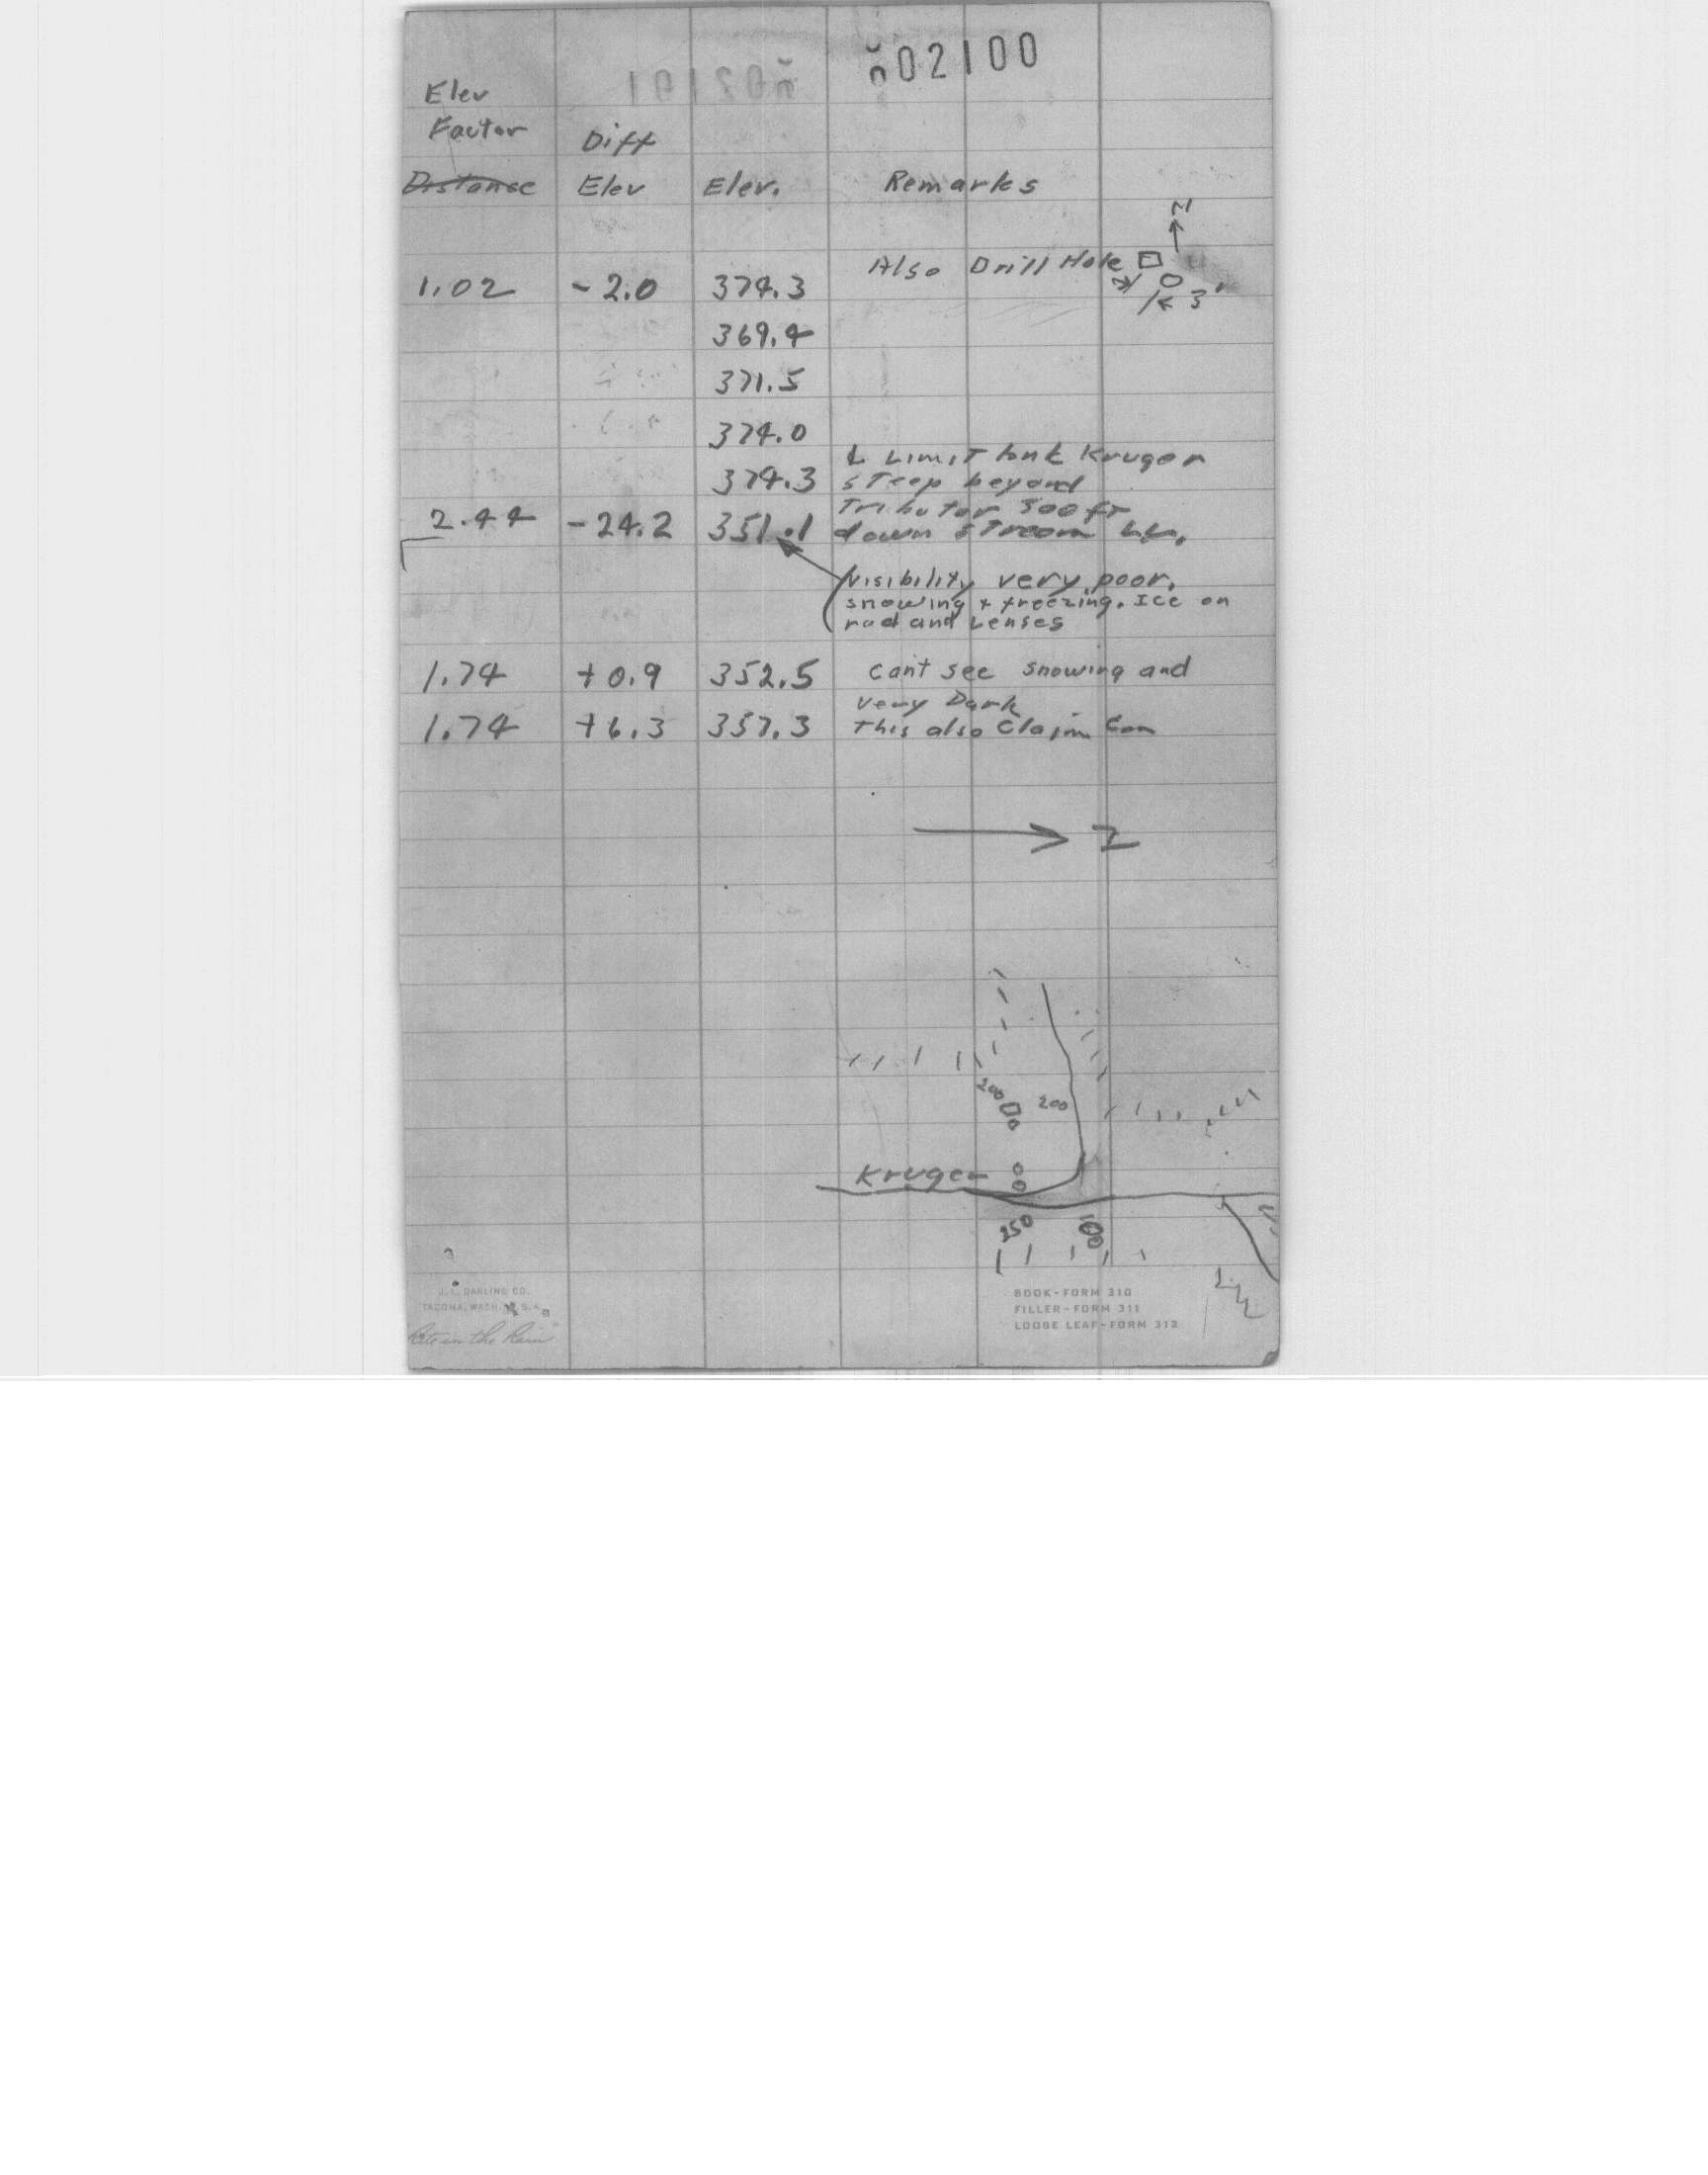 002100
Elev
Factor Diff
Distance Elev Elev. Remarks
N
Also Drill Hole
1.02 - 2.0 374.3
3'
369.4
371.5
374.0
L Limit Kruger
374.3 steep beyond
Tributar 300 ft
2.44 - 24.2 351.1 down stream LL.
Visibility very poor,
snowing + freezing. Ice on
rod and Lenses
1.74 + 0.9 352.5 cant see snowing and
very Dark
1.74 + 6.3 357.3 This also Claim Cor
N
200
200
Kruger
250 100
J. L. DARLING CO.
TACOMA, WASH. U.S.A.
Rite in the Rain
BOOK-FORM 310
FILLER-FORM 311
LOOSE LEAF-FORM 312